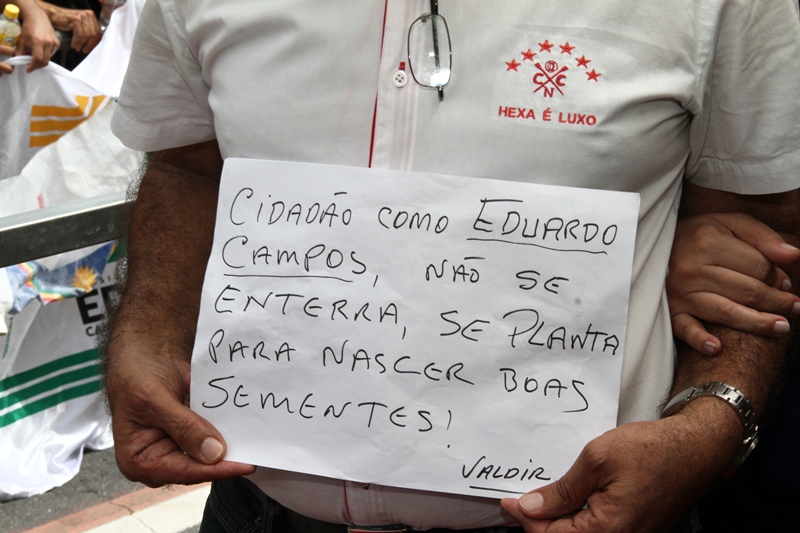 CNC
HEXA É LUXO
CIDADÃO COMO EDUARDO
CAMPOS, NÃO SE
ENTERRA, SE PLANTA
PARA NASCER BOAS
SEMENTES!
VALDIR